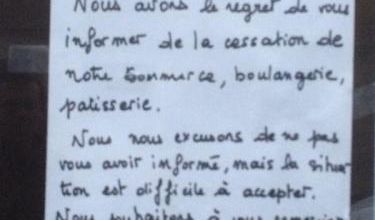 Nous avons le regret de vous
informer de la cessation de
notre commerce, boulangerie,
patisserie.
Nous nous excusons de ne pas
vous avoir informé, mais la situa
tion est difficile à accepter.
Nous souhaitons à vous